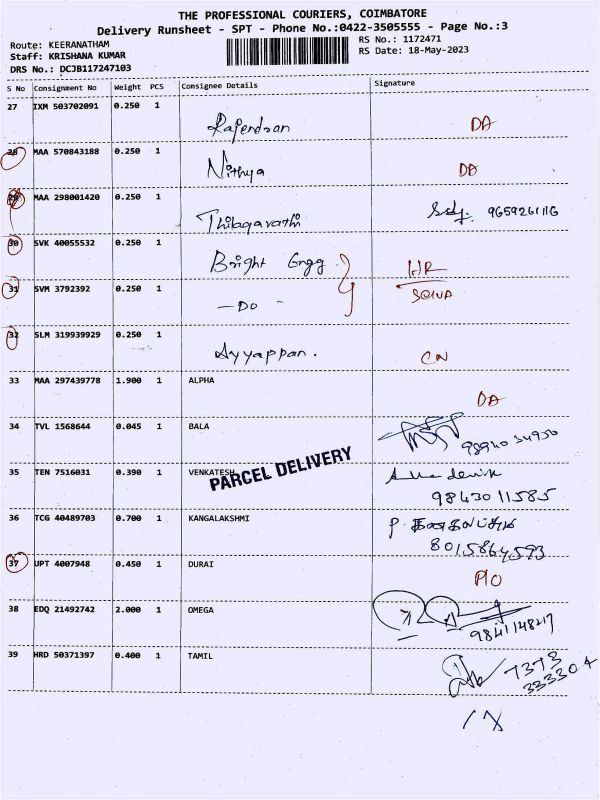 THE PROFESSIONAL COURIERS, COIMBATORE
Delivery Runsheet - SPT - Phone No.:0422-3505555 - Page No.:3
Route: KEERANATHAM
RS No.: 1172471
Staff: KRISHANA KUMAR
RS Date: 18-May-2023
DRS No.: DCJB117247103
S No Consignment No Weight PCS Consignee Details Signature
27 IXM 503702091 0.250 1
Rajendran DA
28 MAA 570843188 0.250 1
Nithya DA
29 MAA 298001420 0.250 1
Thilagavathi Sd/. 9659261116
30 SVK 40055532 0.250 1
Bright Engg. HR
31 SVM 3792392 0.250 1
- Do -
32 SLM 319939929 0.250 1
Ayyappan. CN
33 MAA 297439778 1.900 1 ALPHA
DA
34 TVL 1568644 0.045 1 BALA
9894034950
35 TEN 7516031 0.390 1 VENKATESH
PARCEL DELIVERY
9843011585
36 TCG 40489703 0.700 1 KANGALAKSHMI
8015864593
37 UPT 4007948 0.450 1 DURAI
P/O
38 EDQ 21492742 2.000 1 OMEGA
9841148217
39 HRD 50371397 0.400 1 TAMIL
7373
333304